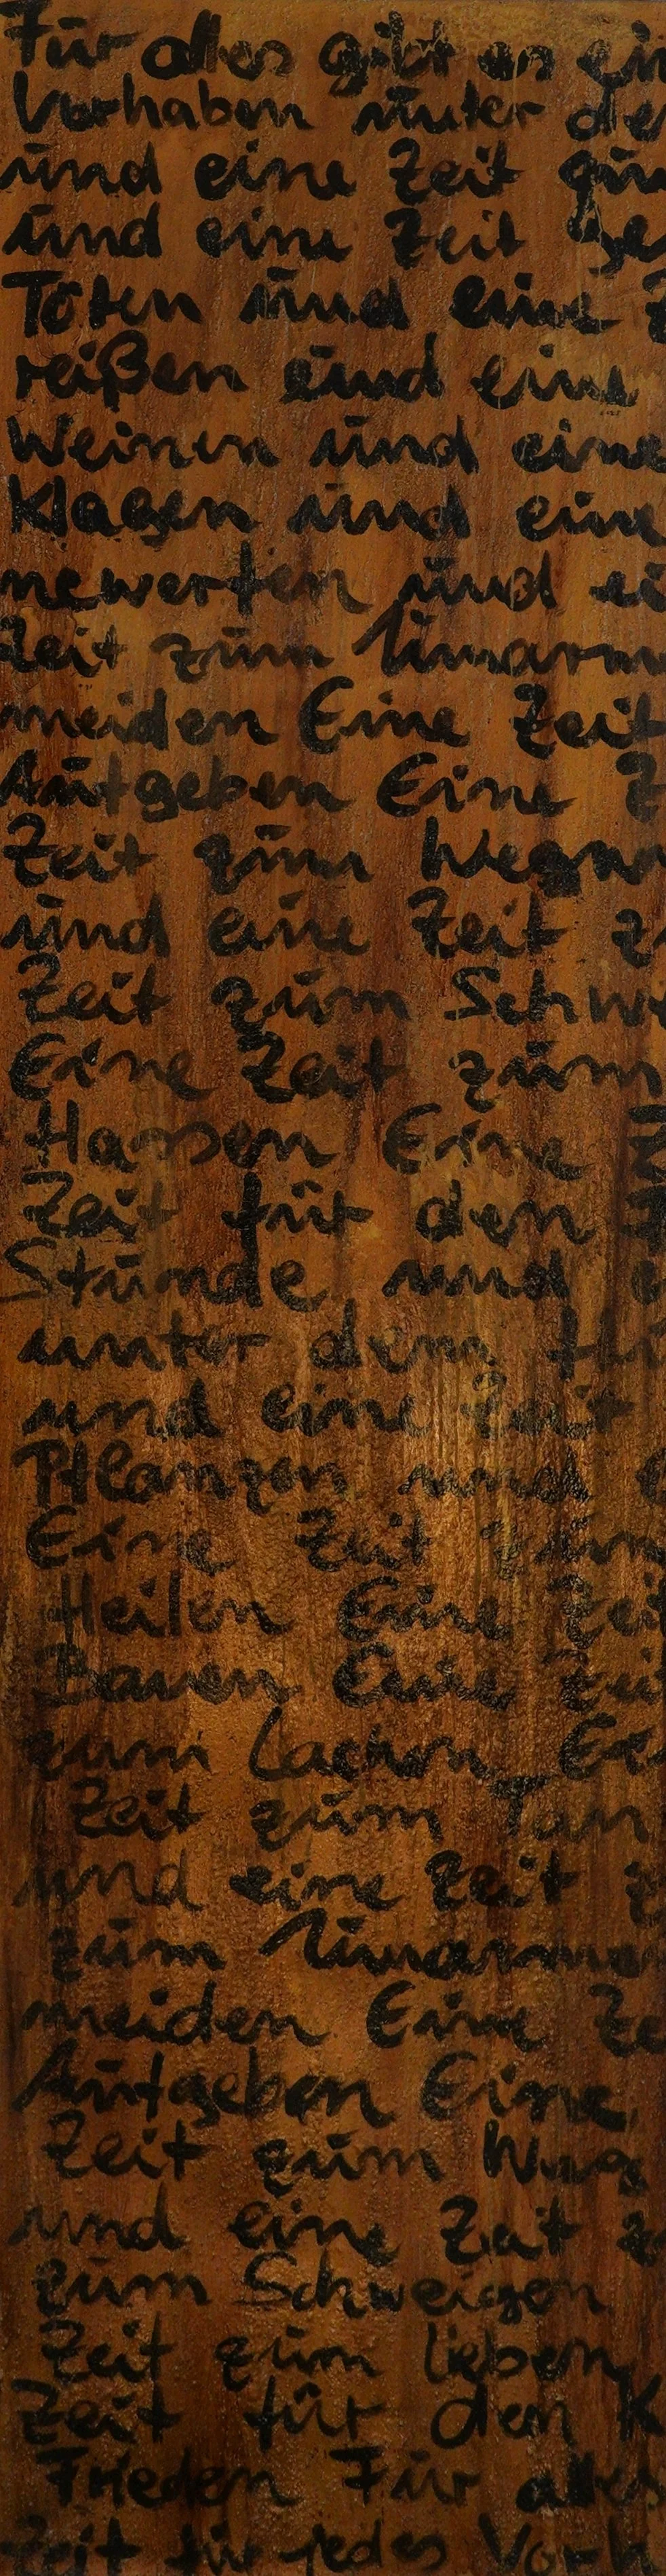 Für alles gibt es ein
Vorhaben unter de
und eine Zeit
und eine Zeit
Töten und eine Z
reißen und eine
Weinen und eine
Klagen und eine
newerfen und ei
Zeit zum Umarm
meiden Eine Zeit
Aufgeben Eine Z
Zeit zum Wegw
und eine Zeit z
Zeit zum Schwe
Eine Zeit zum
Hassen Eine Z
Zeit für den
Stunde und e
unter dem Hi
und eine Zeit
Pflanzen und e
Eine Zeit zum
Heilen Eine Zei
Bauen Eine Zei
zum Lachen Ei
Zeit zum Tan
und eine Zeit z
zum Umarme
meiden Eine Ze
Aufgeben Eine
Zeit zum Weg
und eine Zeit z
zum Schweigen
Zeit zum lieben
Zeit für den K
Frieden Für alles
Zeit für jedes Vorh